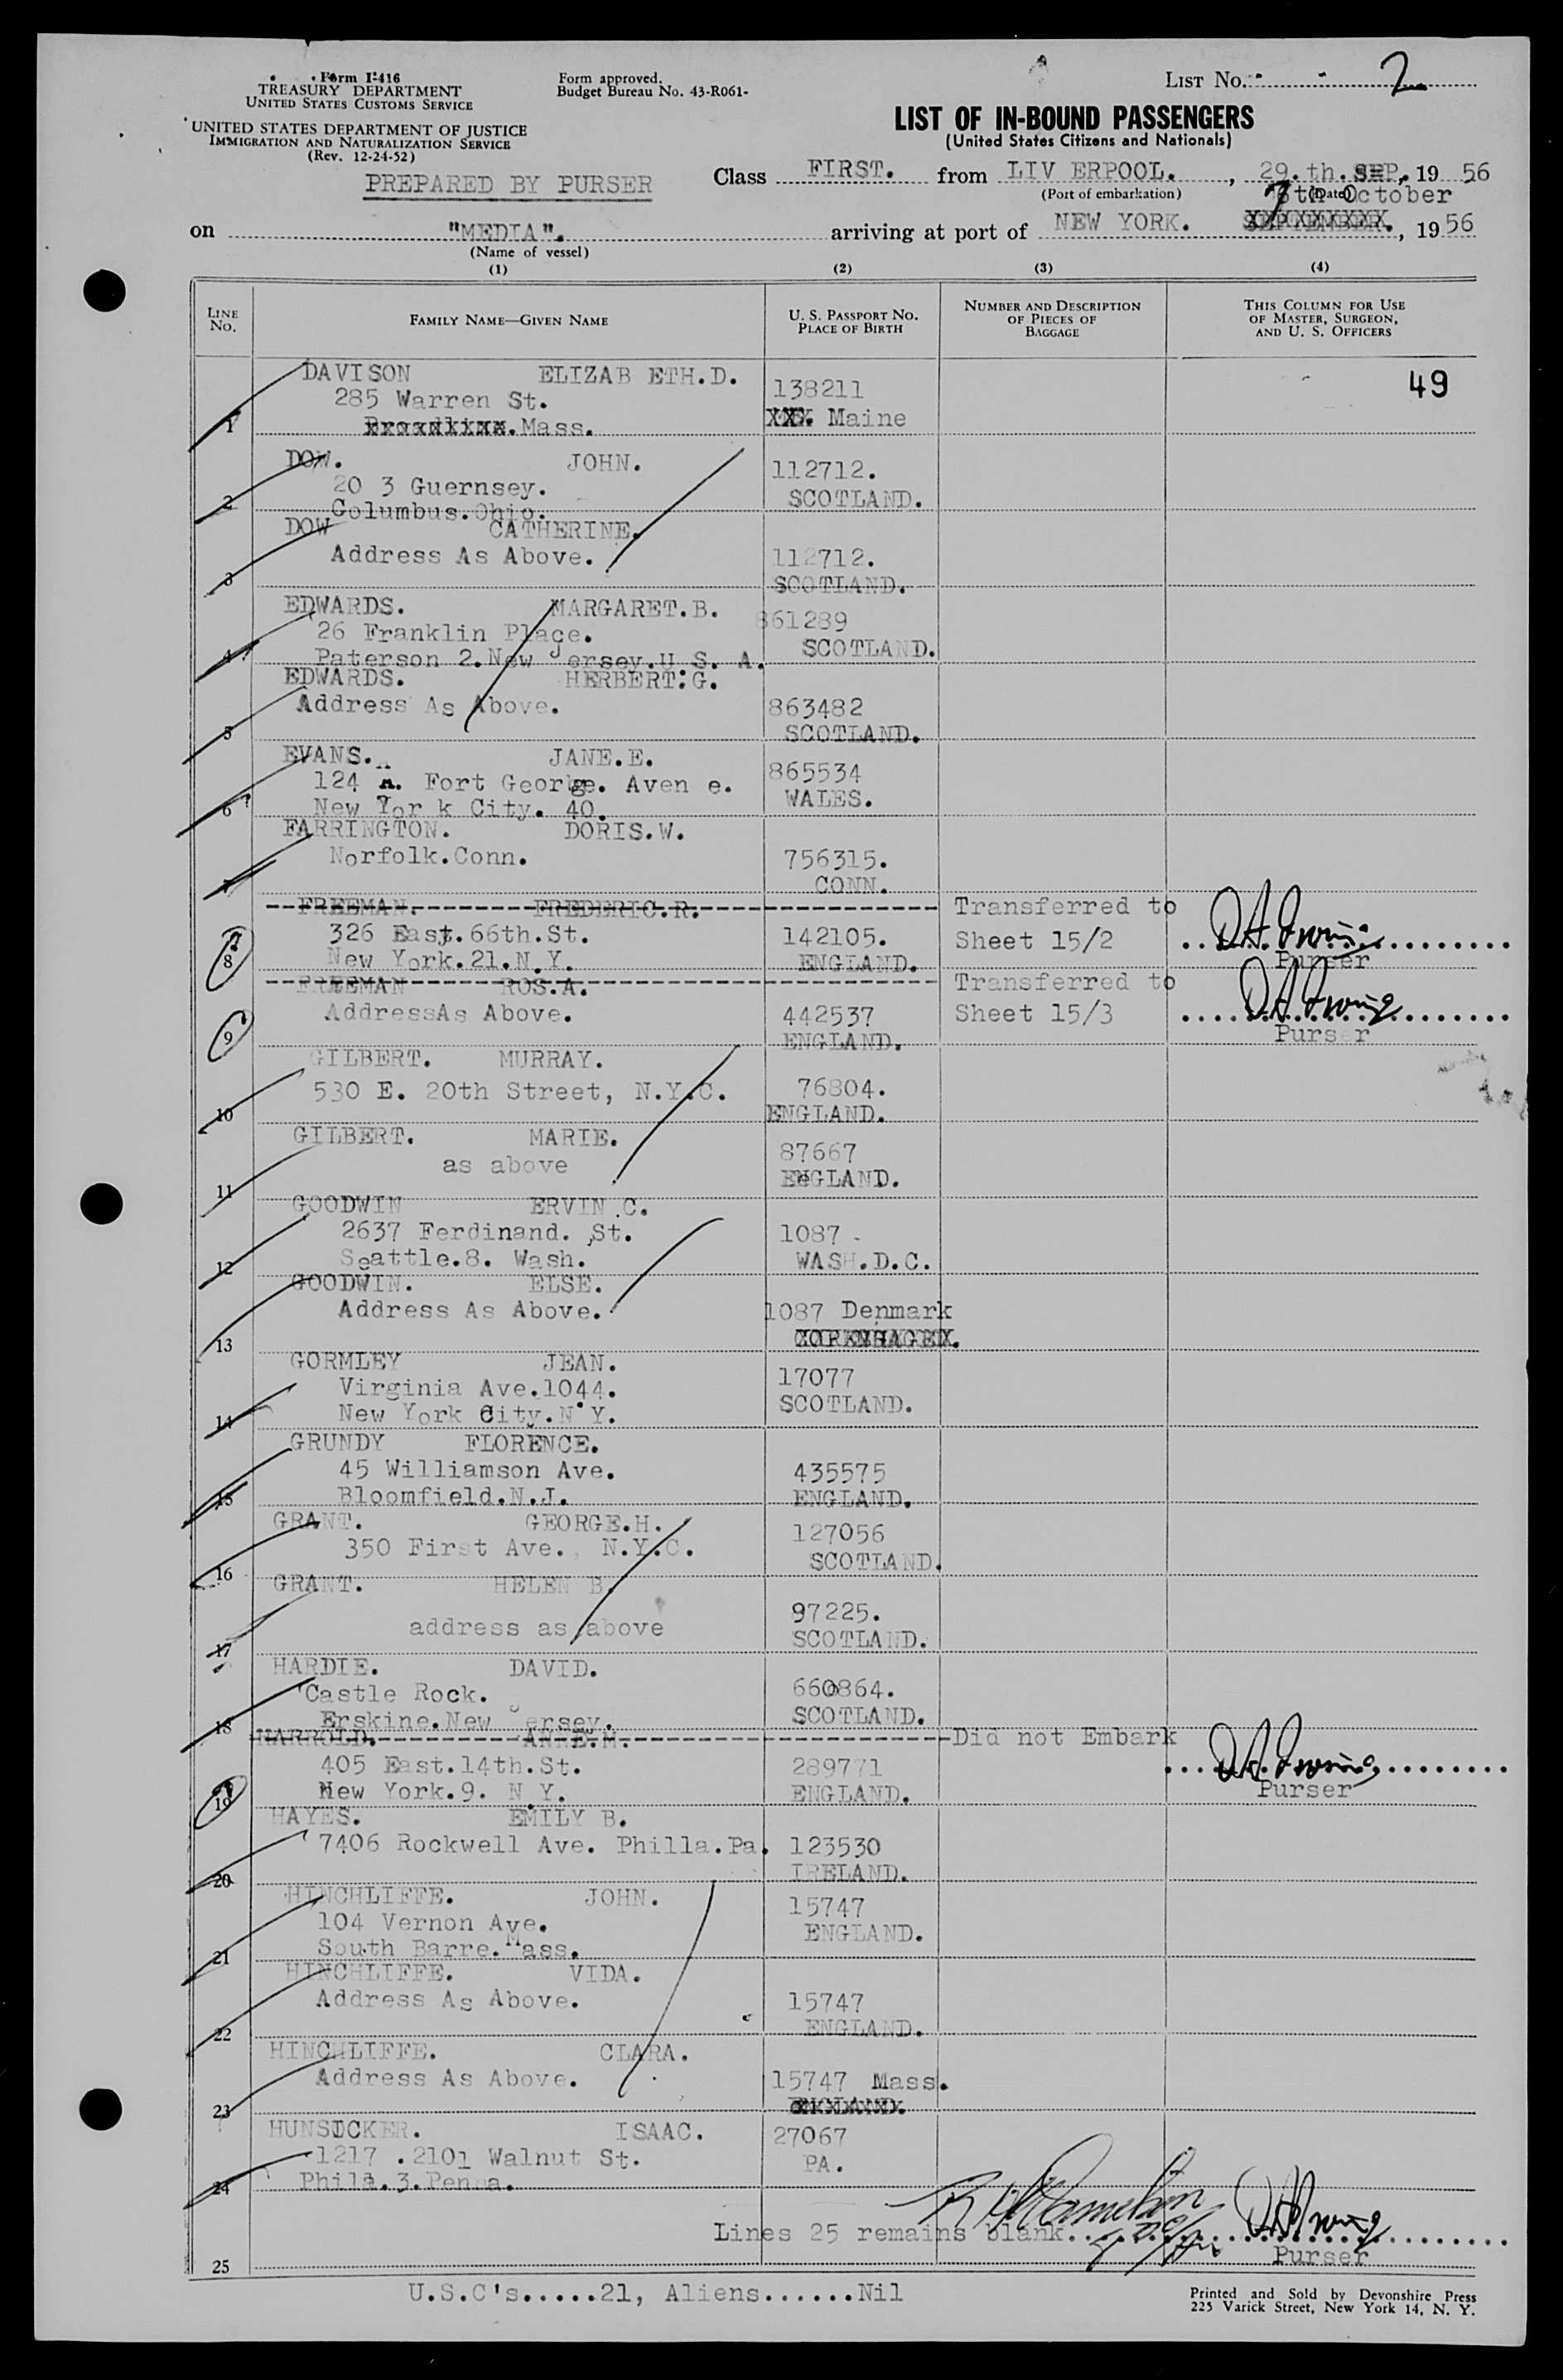 Form I-416
TREASURY DEPARTMENT
UNITED STATES CUSTOMS SERVICE
UNITED STATES DEPARTMENT OF JUSTICE
IMMIGRATION AND NATURALIZATION SERVICE
(Rev. 12-24-52)
Form approved.
Budget Bureau No. 43-R061-
LIST No. 2
LIST OF IN-BOUND PASSENGERS
(United States Citizens and Nationals)
PREPARED BY PURSER
Class FIRST. from LIV ERPOOL., 29.th.SEP, 19 56
(Port of embarkation) (Date)
7th October
on "MEDIA". arriving at port of NEW YORK. SEPTEMBER., 19 56
(Name of vessel)
(1) (2) (3) (4)
LINE No. FAMILY NAME—GIVEN NAME U. S. PASSPORT NO. PLACE OF BIRTH NUMBER AND DESCRIPTION OF PIECES OF BAGGAGE THIS COLUMN FOR USE OF MASTER, SURGEON, AND U. S. OFFICERS
DAVISON ELIZAB ETH.D. 49
285 Warren St. 138211
1 Mass. XXX. Maine
DOW. JOHN. 112712.
20 3 Guernsey. SCOTLAND.
2 Columbus.Ohio.
DOW CATHERINE.
Address As Above. 112712.
3 SCOTLAND.
EDWARDS. MARGARET.B. 861289
26 Franklin Place. SCOTLAND.
4 Paterson 2.New Jersey.U.S. A.
EDWARDS. HERBERT.G.
Address As Above. 863482
5 SCOTLAND.
EVANS. JANE.E. 865534
124 A. Fort George. Aven e. WALES.
6 New Yor k City. 40.
FARRINGTON. DORIS.W.
Norfolk.Conn. 756315.
7 CONN.
FREEMAN. FREDERIC.R. Transferred to
326 East.66th.St. 142105. Sheet 15/2
8 New York.21.N.Y. ENGLAND. Purser
FREEMAN ROS.A. Transferred to
AddressAs Above. 442537 Sheet 15/3
9 ENGLAND. Purser
GILBERT. MURRAY.
530 E. 20th Street, N.Y.C. 76804.
10 ENGLAND.
GILBERT. MARIE. 87667
as above ENGLAND.
11
GOODWIN ERVIN .C.
2637 Ferdinand. St. 1087
12 Seattle.8. Wash. WASH.D.C.
GOODWIN. ELSE.
Address As Above. 1087 Denmark
13 COPENHAGEN.
GORMLEY JEAN. 17077
Virginia Ave.1044. SCOTLAND.
14 New York City.N.Y.
GRUNDY FLORENCE.
45 Williamson Ave. 435575
15 Bloomfield.N.J. ENGLAND.
GRANT. GEORGE.H. 127056
350 First Ave. N.Y.C. SCOTLAND.
16
GRANT. HELEN B.
97225.
address as above SCOTLAND.
17
HARDIE. DAVID.
Castle Rock. 660864.
18 Erskine.New Jersey. SCOTLAND.
HARROLD. ANNE.M. Did not Embark
405 East.14th.St. 289771
19 New York.9. N.Y. ENGLAND. Purser
HAYES. EMILY B.
7406 Rockwell Ave. Philla.Pa. 123530
20 IRELAND.
HINCHLIFFE. JOHN. 15747
104 Vernon Ave. ENGLAND.
21 South Barre.Mass.
HINCHLIFFE. VIDA.
Address As Above. 15747
22 ENGLAND.
HINCHLIFFE. CLARA.
Address As Above. 15747 Mass.
23 ENGLAND.
HUNSICKER. ISAAC. 27067
1217 .2101 Walnut St. PA.
24 Phila.3.Penna.
Lines 25 remains blank.
25 Purser
U.S.C's.....21, Aliens......Nil
Printed and Sold by Devonshire Press
225 Varick Street, New York 14, N. Y.